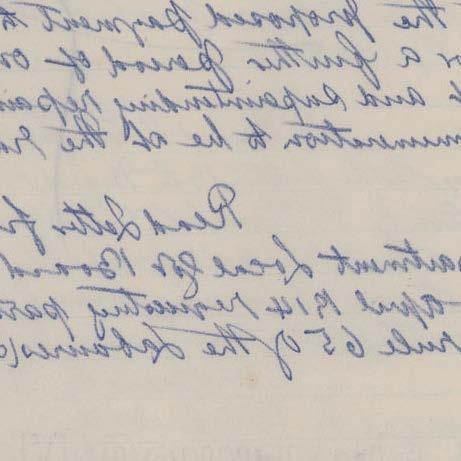 the proposed payment to
or a further period of on
t and superintending repair
muneration to be at the ra
Read Letter fr
artment Local Gov Board
April 1914 requesting pay
rule 65 of the Labourers (